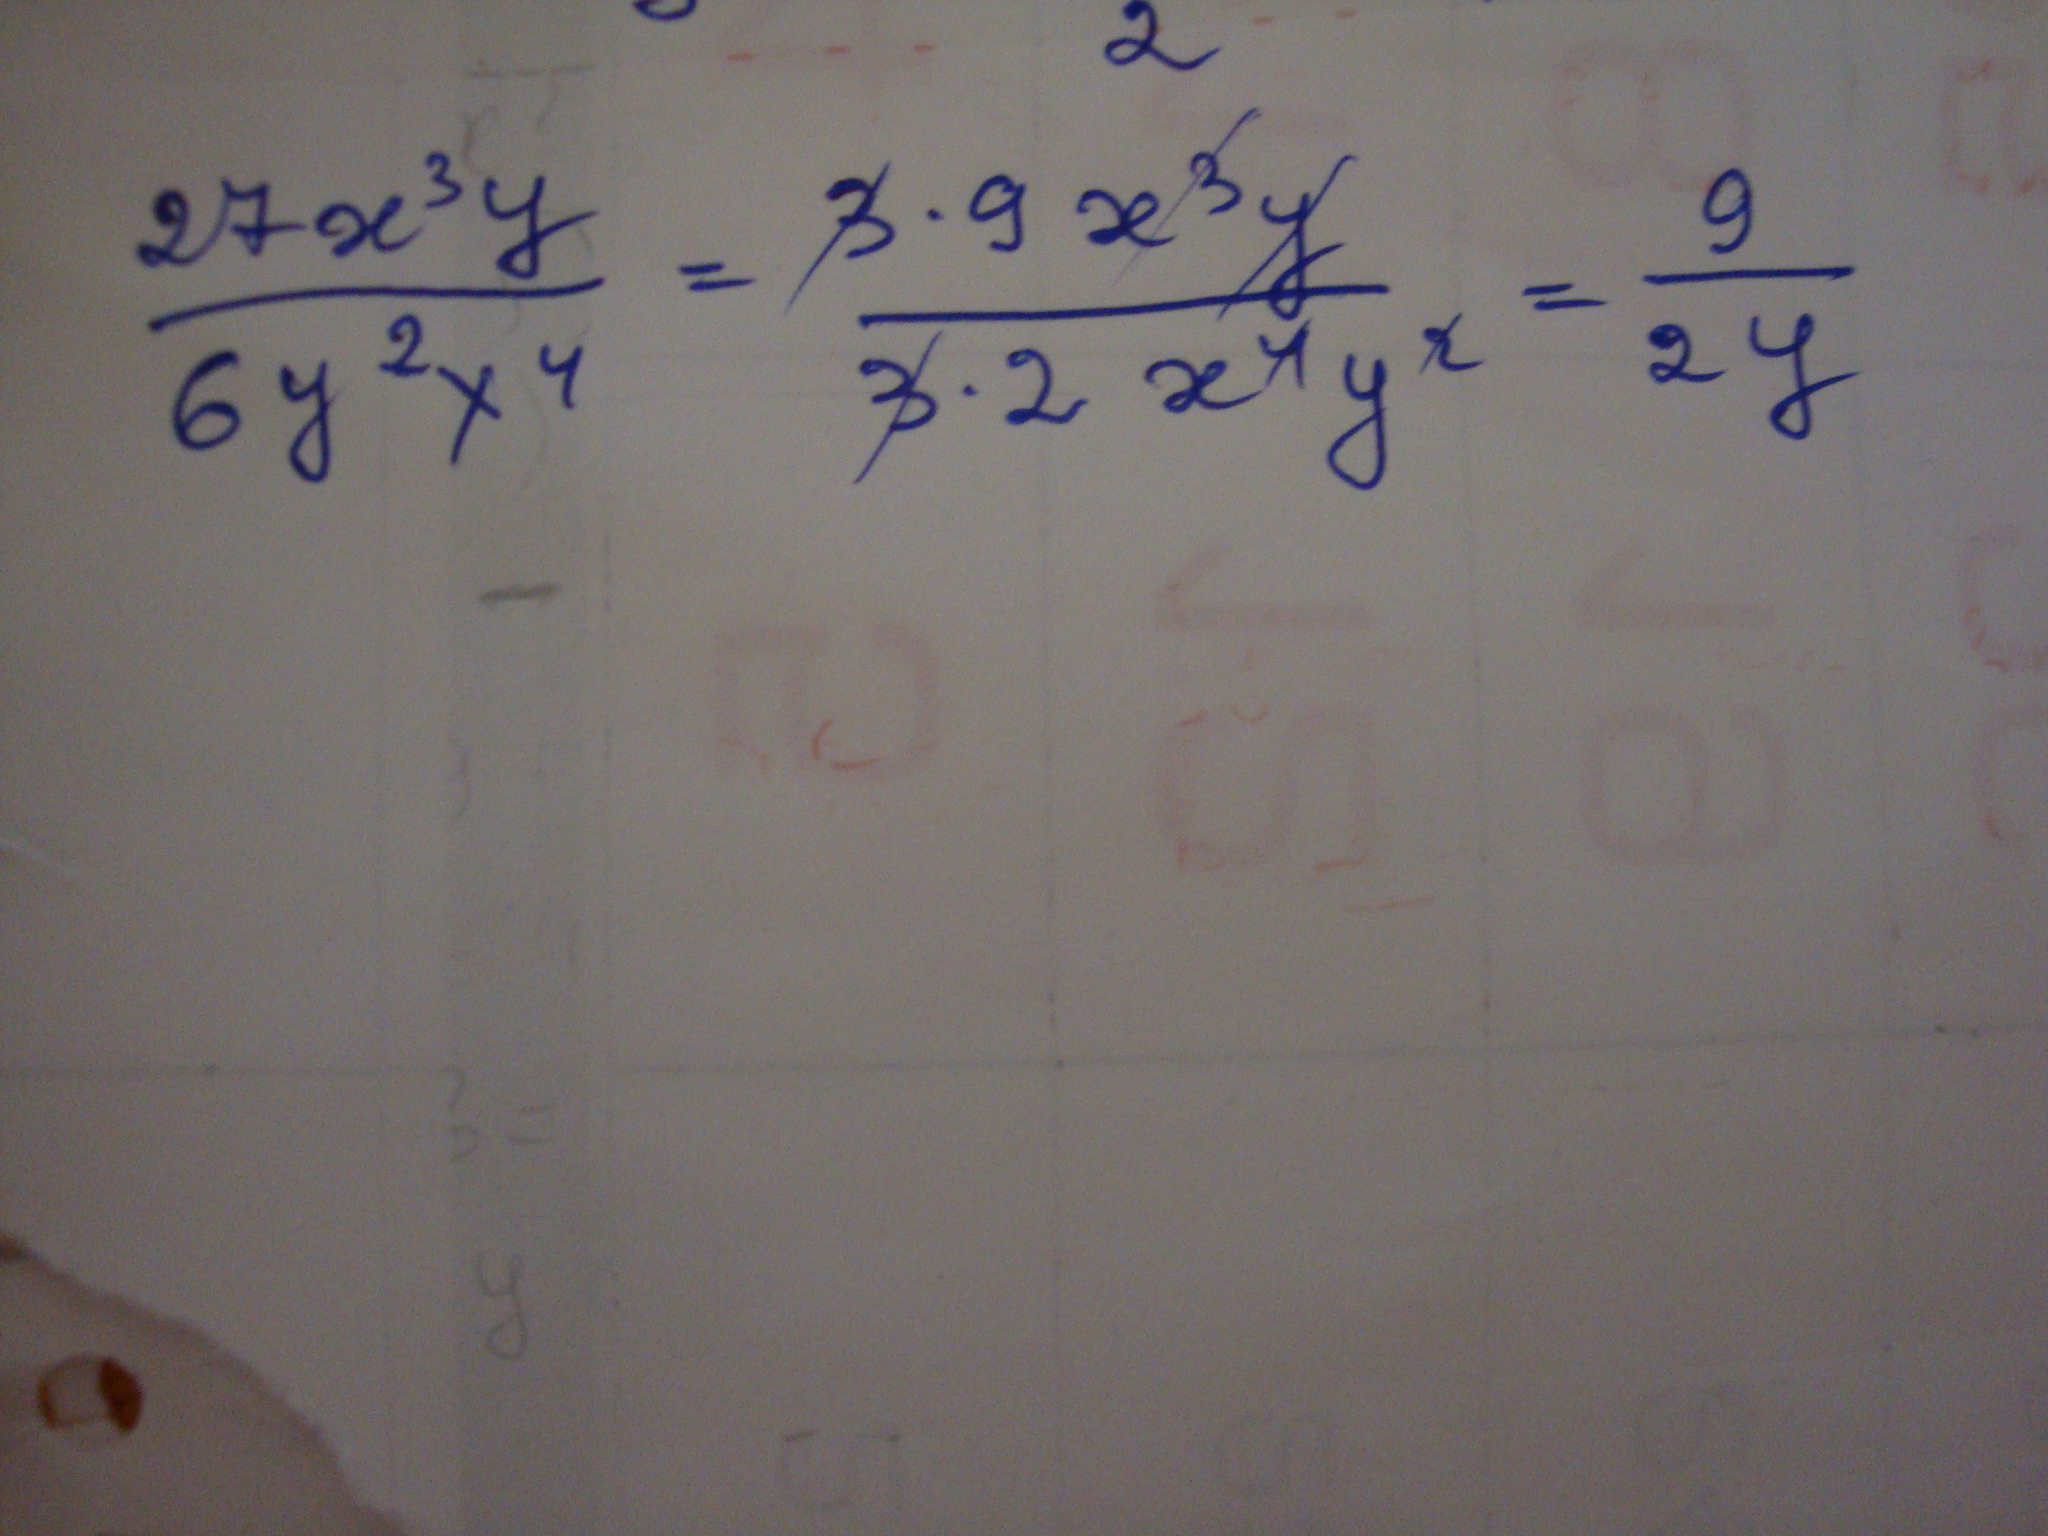 2
27x³y / 6y²x⁴ = 3·9x³y / 3·2x⁴y² = 9 / 2y
y